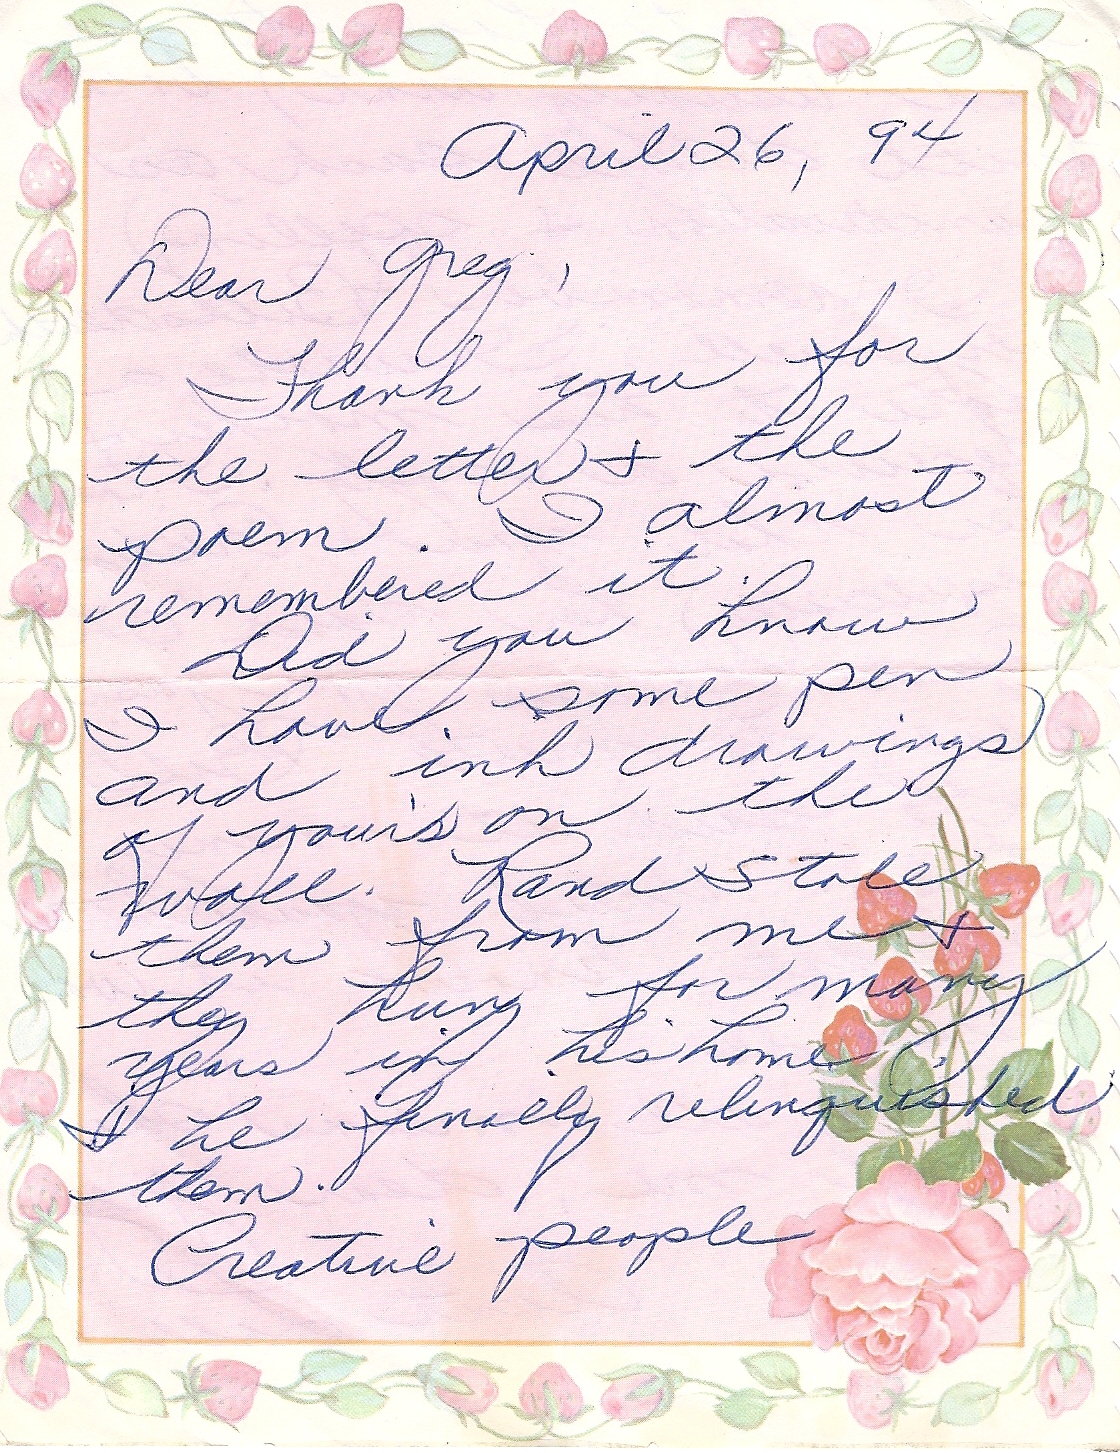 April 26, 94
Dear Greg,
Thank you for
the letter + the
poem. I almost
remembered it.
Did you know
I have some pen
and ink drawings
of your's on the
wall. Rand stole
them from me +
they hung for many
years in his home.
I he finally relinquished
them.
Creative people